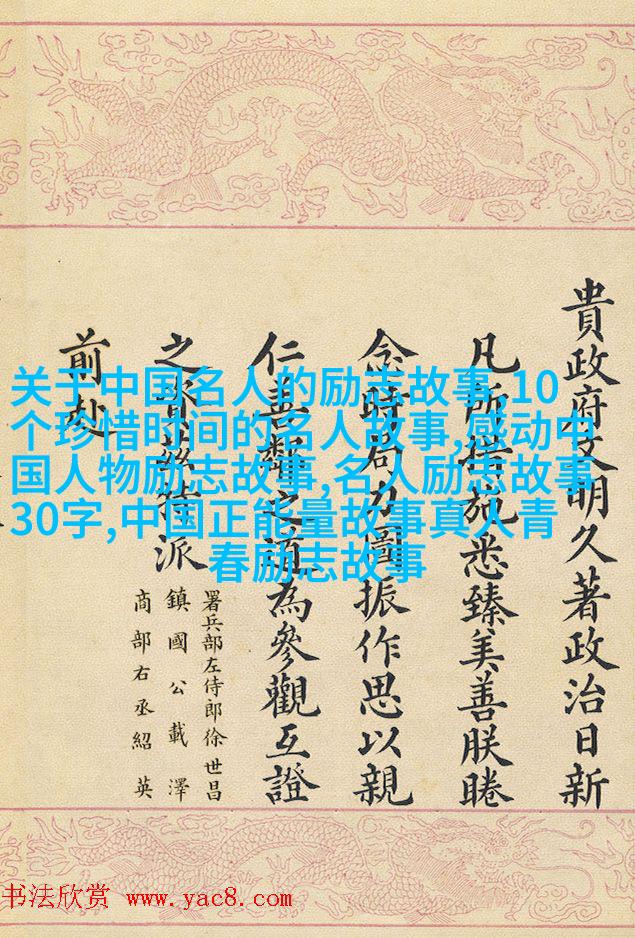 关于中国名人的励志故事,10
个珍惜时间的名人故事,感动中
国人物励志故事,名人励志故事
30字,中国正能量故事真人青
春励志故事
貴政府文明久著政治日新
凡所措施悉臻美善朕睠
念時局力圖振作思以親
仁善鄰之道為參觀互證
之資茲特派
署兵部左侍郎徐世昌
鎮國公載澤
商部右丞紹英
前赴
书法欣赏 www.yac8.com